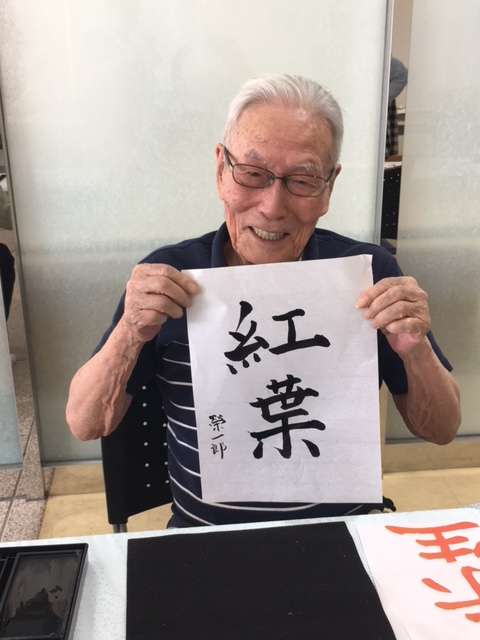 紅葉
榮一郎